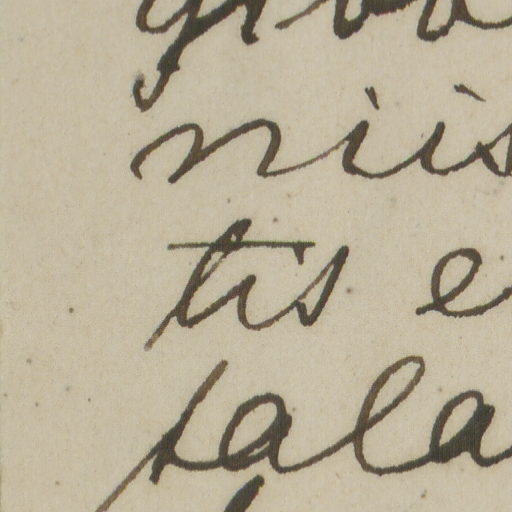 niis
tis e
sala